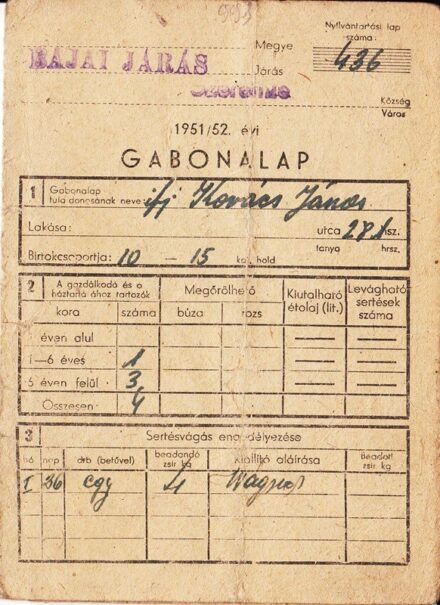 993
Nyilvántartási lap
száma:
Megye
436
BAJAI JÁRÁS
Járás
Község
Város
1951/52. évi
GABONALAP
1 Gabonalap
tulajdonosának neve: ifj Kovács János
Lakása: utca 281 sz.
Birtokcsoportja: 10 — 15 kat. hold tanya hrsz.
2 A gazdálkodó és a háztartásához tartozók Megőrölhető Kiutalható étolaj (lit.) Levágható sertések száma
kora száma búza rozs
éven alul
1—6 éves 1
6 éven felül 3
Összesen: 4
3 Sertésvágás engedélyezése
hó nap drb (betűvel) beadandó zsír kg Kiállító aláírása Beadott zsír kg
I 36 egy 4 Wagner